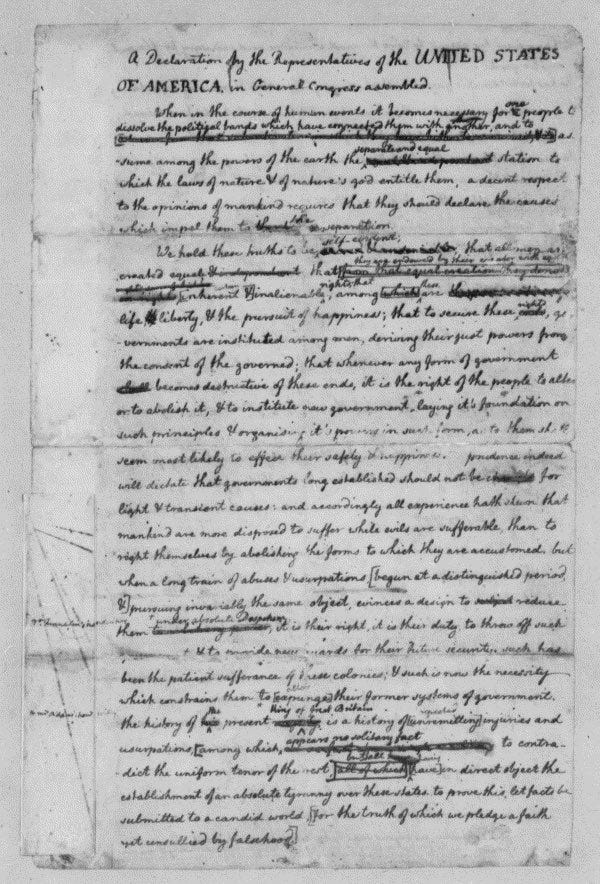 A Declaration by the Representatives of the UNITED STATES
OF AMERICA, in General Congress assembled.
When in the course of human events it becomes necessary for one people to
dissolve the political bands which have connected them with another, and to
as-
separate and equal
-sume among the powers of the earth the station to
which the laws of nature & of nature's god entitle them, a decent respect
to the opinions of mankind requires that they should declare the causes
which impel them to the separation.
self-evident,
We hold these truths to be that all men are
they are endowed by their creator with
created equal & independent that from that equal creation they derive
rights; that these
inherent & inalienable among which are
rights
life liberty, & the pursuit of happiness; that to secure these ends, go-
-vernments are instituted among men, deriving their just powers from
the consent of the governed; that whenever any form of government
shall becomes destructive of these ends, it is the right of the people to alter
or to abolish it, & to institute new government, laying it's foundation on
such principles & organising it's powers in such form, as to them shall
seem most likely to effect their safety & happiness. prudence indeed
will dictate that governments long established should not be changed for
light & transient causes: and accordingly all experience hath shewn that
mankind are more disposed to suffer while evils are sufferable, than to
right themselves by abolishing the forms to which they are accustomed. but
when a long train of abuses & usurpations [begun at a distinguished period,
&] pursuing invariably the same object, evinces a design to subject reduce
under absolute Despotism
them it is their right, it is their duty, to throw off such
& to provide new guards for their future security. such has
been the patient sufferance of these colonies; & such is now the necessity
alter
which constrains them to [expunge] their former systems of government.
the King of Great Britain repeated
the history of his present is a history of [unremitting] injuries and
appears no solitary fact
usurpations, [among which, to contra-
in all having
-dict the uniform tenor of the rest [all of which] [have] in direct object the
establishment of an absolute tyranny over these states. to prove this, let facts be
submitted to a candid world [for the truth of which we pledge a faith
yet unsullied by falsehood]